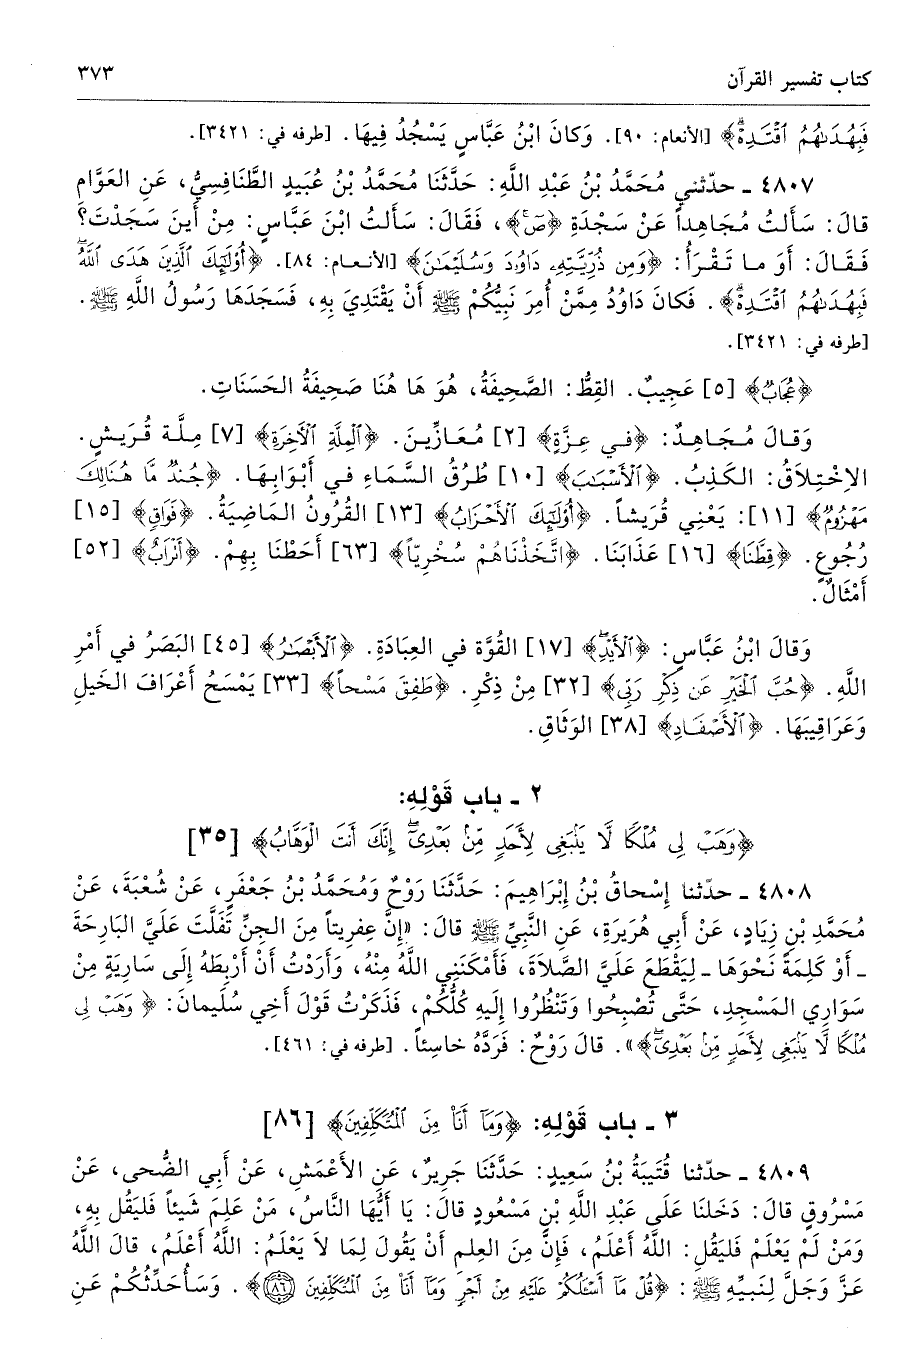 كتاب تفسير القرآن ٣٧٣
فَبِهُدَىٰهُمُ ٱقْتَدِهْ﴾ [الأنعام: ٩٠]. وَكانَ ابْنُ عَبَّاسٍ يَسْجُدُ فِيهَا. [طرفه في: ٣٤٢١].
٤٨٠٧ ـ حدّثني مُحَمَّدُ بْنُ عَبْدِ اللَّهِ: حَدَّثَنَا مُحَمَّدُ بْنُ عُبَيدٍ الطَّنَافِسِيُّ، عَنِ العَوَّامِ
قالَ: سَأَلتُ مُجَاهِداً عَنْ سَجْدَةِ ﴿صۤ﴾، فَقَالَ: سَأَلتُ ابْنَ عَبَّاسٍ: مِنْ أَينَ سَجَدْتَ؟
فَقَالَ: أَوَ ما تَقْرَأُ: ﴿وَمِن ذُرِّيَّتِهِۦ دَاوُۥدَ وَسُلَيْمَـٰنَ﴾ [الأنعام: ٨٤]. ﴿أُوْلَـٰٓئِكَ ٱلَّذِينَ هَدَى ٱللَّهُ
فَبِهُدَىٰهُمُ ٱقْتَدِهْ﴾. فَكانَ دَاوُدُ مِمَّنْ أُمِرَ نَبِيُّكُمْ ﷺ أَنْ يَقْتَدِيَ بِهِ، فَسَجَدَهَا رَسُولُ اللَّهِ ﷺ.
[طرفه في: ٣٤٢١].
﴿عُجَابٌ﴾ [٥] عَجِيبٌ. القِطُّ: الصَّحِيفَةُ، هُوَ هَا هُنَا صَحِيفَةُ الحَسَنَاتِ.
وَقالَ مُجَاهِدٌ: ﴿في عِزَّةٍ﴾ [٢] مُعَازِّينَ. ﴿ٱلْمِلَّةِ ٱلْأَخِرَةِ﴾ [٧] مِلَّة قُرَيشٍ.
الاِخْتِلاَقُ: الكَذِبُ. ﴿ٱلْأَسْبَـٰبِ﴾ [١٠] طُرُقُ السَّمَاءِ في أَبْوَابِهَا. ﴿جُندٌ مَّا هُنَالِكَ
مَهْزُومٌ﴾ [١١]: يَعْنِي قُرَيشاً. ﴿أُوْلَـٰٓئِكَ ٱلْأَحْزَابُ﴾ [١٣] القُرُونُ المَاضِيَةُ. ﴿فَوَاقٍ﴾ [١٥]
رُجُوعٍ. ﴿قِطَّنَا﴾ [١٦] عَذَابَنَا. ﴿اتَّخَذْنَاهُمْ سُخْرِيّاً﴾ [٦٣] أَحَطْنَا بِهِمْ. ﴿أَتْرَابٌ﴾ [٥٢]
أَمْثَالٌ.
وَقالَ ابْنُ عَبَّاسٍ: ﴿ٱلْأَيْدِ﴾ [١٧] القُوَّة في العِبَادَةِ. ﴿ٱلْأَبْصَـٰرُ﴾ [٤٥] البَصَرُ في أَمْرِ
اللَّهِ. ﴿حُبَّ ٱلْخَيْرِ عَن ذِكْرِ رَبِّى﴾ [٣٢] مِنْ ذِكْرِ. ﴿طَفِقَ مَسْحاً﴾ [٣٣] يَمْسَحُ أَعْرَافَ الخَيلِ
وَعَرَاقِيبَهَا. ﴿ٱلْأَصْفَادِ﴾ [٣٨] الوَثَاقِ.
٢ ـ باب قَوْلِهِ:
﴿وَهَبْ لِى مُلْكًا لَّا يَنۢبَغِى لِأَحَدٍ مِّنۢ بَعْدِىٓ إِنَّكَ أَنتَ الْوَهَّابُ﴾ [٣٥]
٤٨٠٨ ـ حدّثنا إِسْحاقُ بْنُ إِبْرَاهِيمَ: حَدَّثَنَا رَوْحٌ وَمُحَمَّدُ بْنُ جَعْفَرٍ، عَنْ شُعْبَةَ، عَنْ
مُحَمَّدِ بْنِ زِيَادٍ، عَنْ أَبِي هُرَيرَةَ، عَنِ النَّبِيِّ ﷺ قالَ: «إِنَّ عِفرِيتاً مِنَ الجِنِّ تَفَلَّتَ عَلَيَّ البَارِحَةَ
ـ أَوْ كَلِمَةً نَحْوَهَا ـ لِيَقْطَعَ عَلَيَّ الصَّلاَةَ، فَأَمْكَنَنِي اللَّهُ مِنْهُ، وَأَرَدْتُ أَنْ أَرْبِطَهُ إِلَى سَارِيَةٍ مِنْ
سَوَارِي المَسْجِدِ، حَتَّى تُصْبِحُوا وَتَنْظُرُوا إِلَيهِ كُلُّكُمْ، فَذَكَرْتُ قَوْلَ أَخِي سُلَيمانَ: ﴿وَهَبْ لِى
مُلْكًا لَّا يَنۢبَغِى لِأَحَدٍ مِّنۢ بَعْدِىٓ﴾». قالَ رَوْحٌ: فَرَدَّهُ خاسِئاً. [طرفه في: ٤٦١].
٣ ـ باب قَوْلِهِ: ﴿وَمَآ أَنَا۠ مِنَ ٱلْمُتَكَلِّفِينَ﴾ [٨٦]
٤٨٠٩ ـ حدّثنا قُتَيبَةُ بْنُ سَعِيدٍ: حَدَّثَنَا جَرِيرٌ، عَنِ الأَعْمَشِ، عَنْ أَبِي الضُّحى، عَنْ
مَسْرُوقٍ قالَ: دَخَلنَا عَلَى عَبْدِ اللَّهِ بْنِ مَسْعُودٍ قالَ: يَا أَيُّهَا النَّاسُ، مَنْ عَلِمَ شَيئاً فَليَقُل بِهِ،
وَمَنْ لَمْ يَعْلَمْ فَليَقُلِ: اللَّهُ أَعْلَمُ، فَإِنَّ مِنَ العِلمِ أَنْ يَقُولَ لِمَا لاَ يَعْلَمُ: اللَّهُ أَعْلَمُ، قالَ اللَّهُ
عَزَّ وَجَلَّ لِنَبِيِّهِ ﷺ: ﴿قُلْ مَآ أَسْـَٔلُكُمْ عَلَيْهِ مِنْ أَجْرٍ وَمَآ أَنَا۠ مِنَ ٱلْمُتَكَلِّفِينَ ۝٨٦﴾. وَسَأُحَدِّثُكُمْ عَنِ